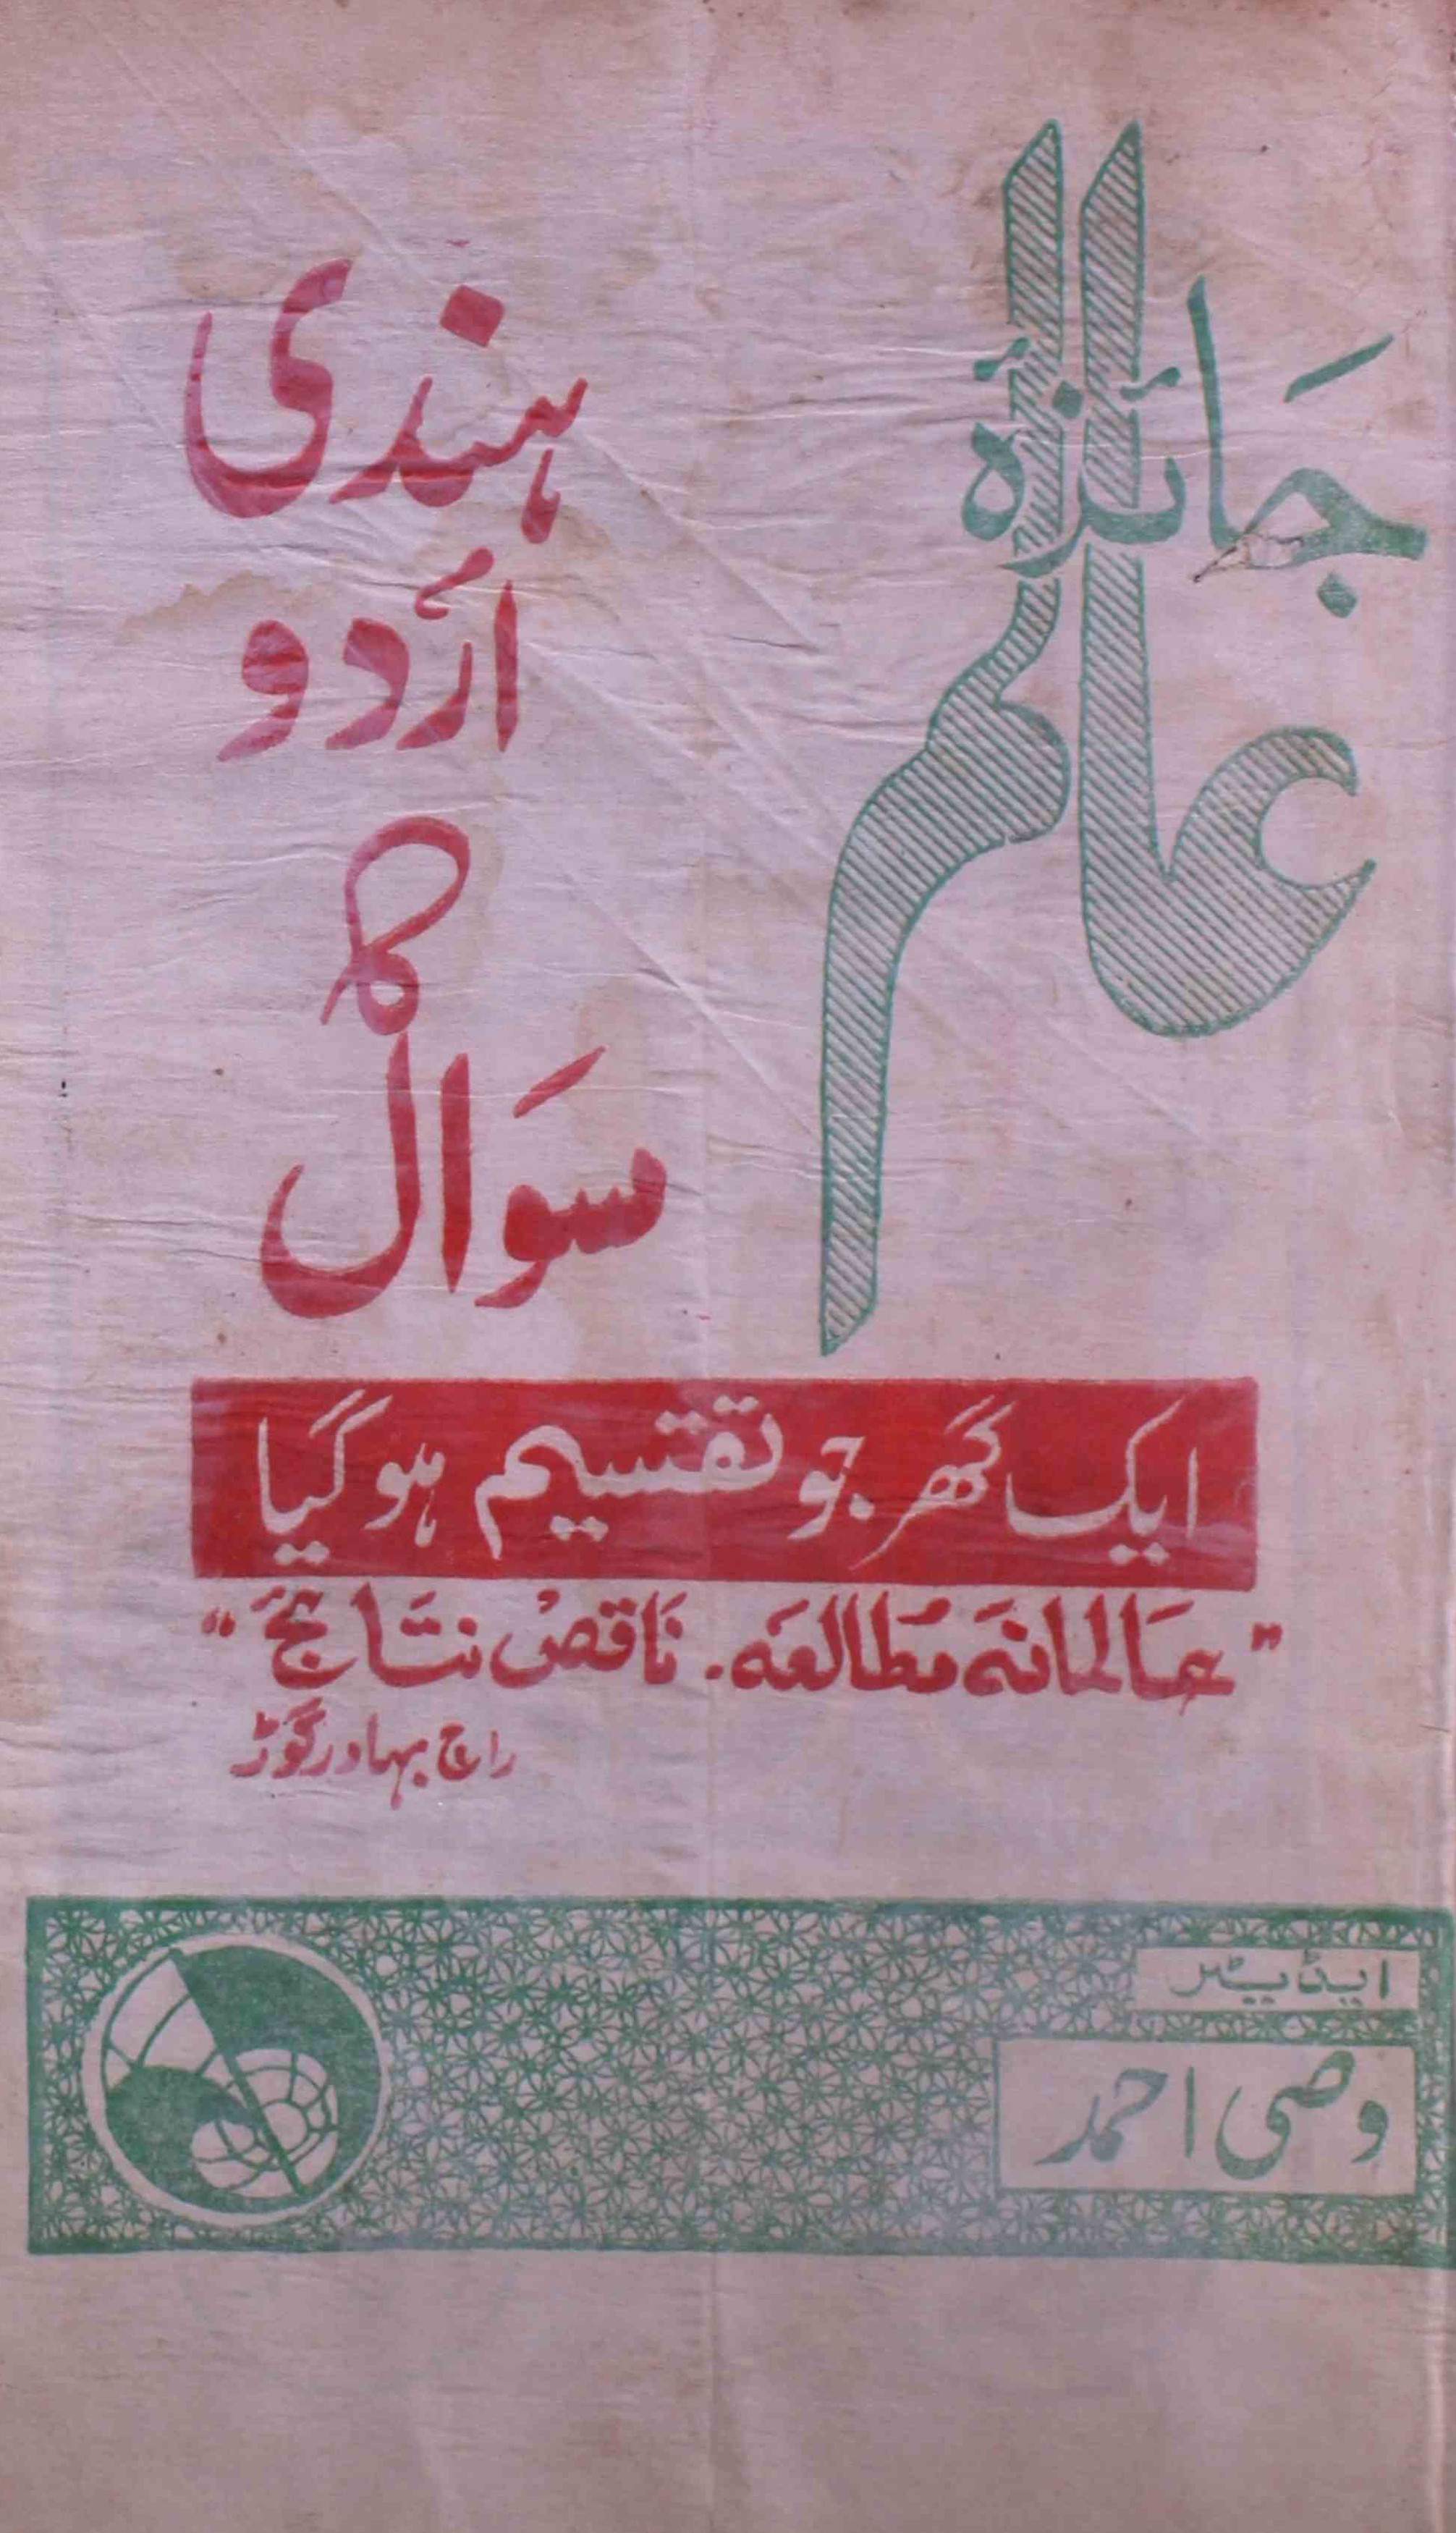 جَائزہ
عالم
ہندی
اُردو
کا
سوَال
ایک گھر جو تقسیم ہوگیا
"عَالمانہ مُطالعہ۔ نَاقصُ نتَائج"
راج بہادر گوڑ
ایڈیٹر
وصی احمد